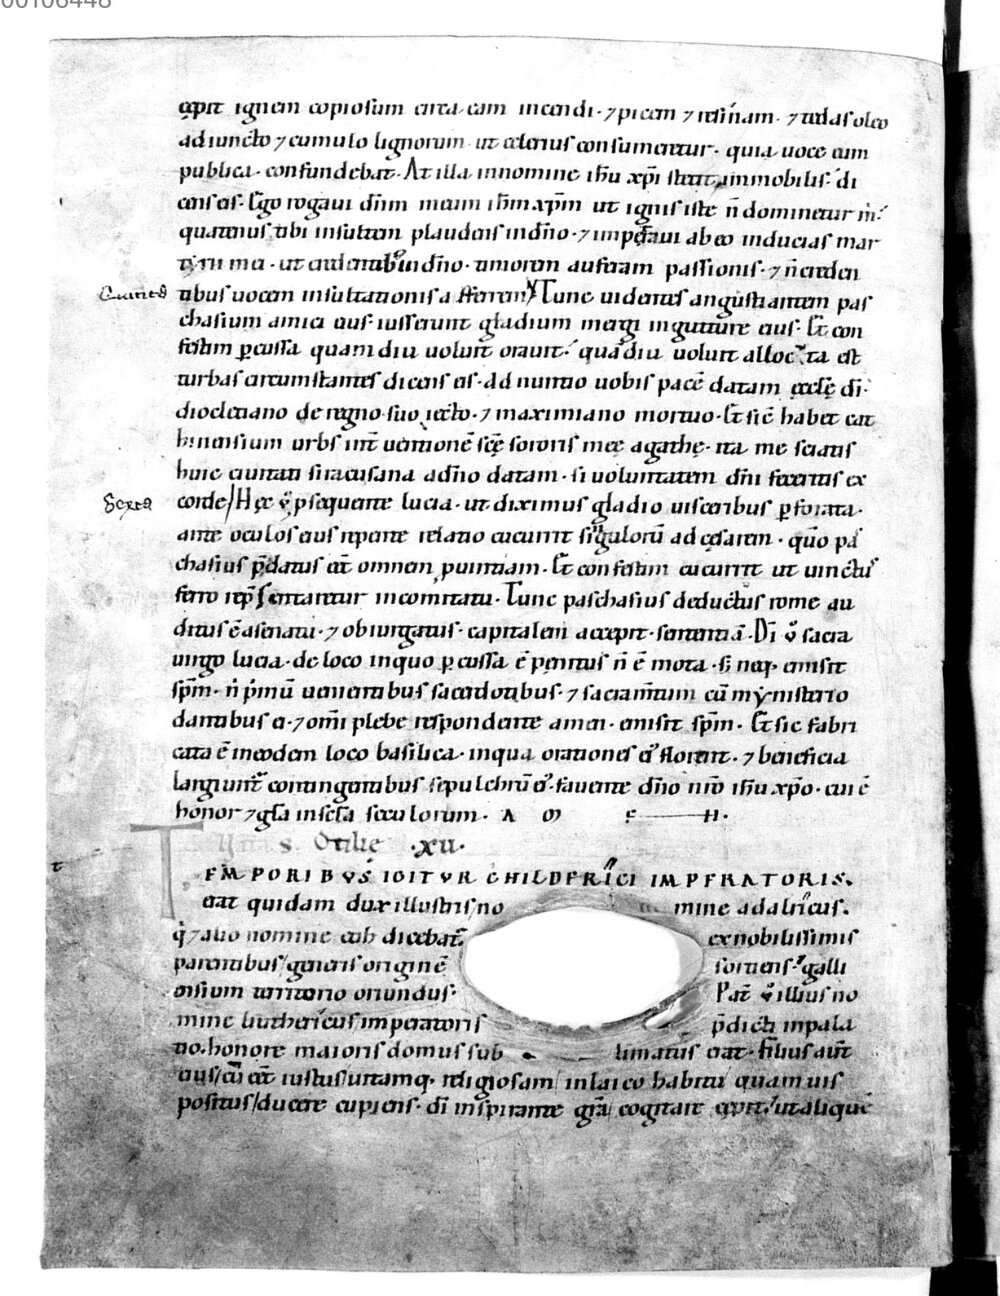 00106448
cępit ignem copiosum circa eam incendi · ⁊ picem ⁊ resinam · ⁊ tedas oleo
adiuncto ⁊ cumulo lignorum ut celerius consumeretur · quia uoce eum
publica · confundebat · At illa innomine ihū xp̄i stetit immobilis · di
cens eis · Ego rogaui dn̄m meum ihm̄ xp̄m ut ignis iste n̄ dominetur m̄ ·
quatenus tibi insultem plaudens indn̄o · ⁊ impetraui ab eo inducias mar
tyrii mei · ut credentibus indn̄o · timorem auferam passionis · ⁊ n̄ creden
tibus uocem insultationis afferrem Tunc uidentes angustiantem pas
chasium amici eius · iusserunt gladium mergi ingutture eius · Et con
festim p̄cussa quam diu uoluit orauit · quādiu uoluit allocuta est
turbas circumstantes dicens eis · ad nuntio uobis pacē datam ęcclę dī ·
diocletiano de regno suo iecto · ⁊ maximiano mortuo · Et sic̄ habet cat
hinensium urbs int̄ uentionē scę sororis męę agathę · ita me sciatis
huic ciuitati siracusana adn̄o datam · si uoluntatem dn̄i feceritis ex
Sexta corde Hęc ū psequente lucia · ut diximus gladio uisceribus p̄forata ·
ante oculos eius repente relatio cucurrit singulorū ad cęsarem · quō pa
chasius p̄datus cēt omnem puintiam · Et confestim cucurrit ut uinctus
ferro rep̄sentaretur incomitatu · Tunc paschasius deductus rome au
ditus ē asenatu · ⁊ obiurgatus · capitalem accepit sententiā · Dī ū sacra
uirgo lucia · de loco inquo p̄cussa ē penitus n̄ ē mota · si neq · emisit
sp̄m · n̄ p̄mū uenientibus sacerdotibus · ⁊ sacram̄tum cū mynisterio
dantibus ei · ⁊ om̄i plebe respondente amen · emisit sp̄m · Et sic fabri
cata ē ineodem loco basilica · inqua orationes ei' florent · ⁊ beneficia
largiunt̄ contingentibus sepulchrū ei' · fauente dn̄o nr̄o ihū xp̄o · cui ē
honor ⁊ gła inscła sęculorum · A M E N ·
s. Otilię · xii ·
TEMPORIBVS IGITVR CHILDERICI IMPERATORIS ·
erat quidam dux illustris no mine adalricus ·
q̇ ⁊ alio nomine etih dicebat̄ exnobilissimis
parentibus generis originē sortiens · galli
ensium territorio oriundus · Pat̄ ū illius no
mine liuthericus imperatoris p̄dicti inpala
tio · honore maioris domus sub limatus erat · filius aut̄
eius cū eēt iustus uitamq · religiosam inlaico habitu quamuis
positus ducere cupiens · dī inspirante gr̄a cogitare cępit ut aliquē